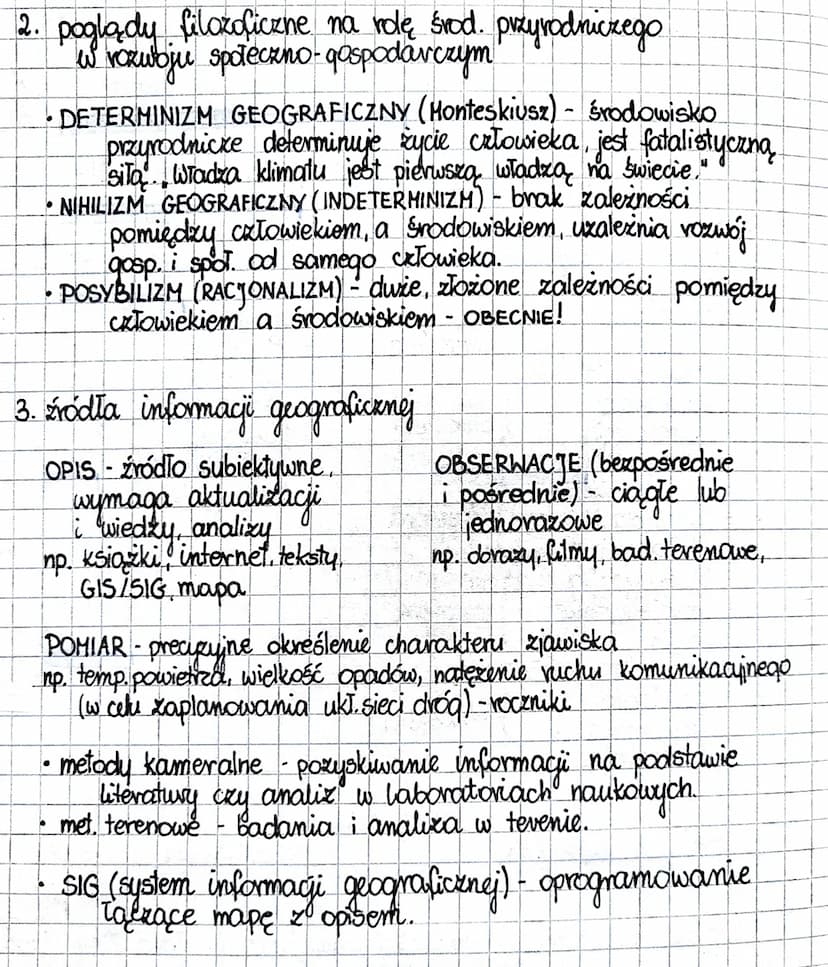 2. poglądy filozoficzne na rolę środ. przyrodniczego
w rozwoju społeczno-gospodarczym
• DETERMINIZM GEOGRAFICZNY (Monteskiusz) - środowisko
przyrodnicze determinuje życie człowieka, jest fatalistyczną
siłą. "Władza klimatu jest pierwszą władzą na świecie."
• NIHILIZM GEOGRAFICZNY (INDETERMINIZM) - brak zależności
pomiędzy człowiekiem, a środowiskiem, uzależnia rozwój
gosp. i społ. od samego człowieka.
• POSYBILIZM (RACJONALIZM) - duże, złożone zależności pomiędzy
człowiekiem a środowiskiem - OBECNIE!
3. źródła informacji geograficznej
OPIS - źródło subiektywne,
wymaga aktualizacji
i wiedzy, analizy
np. książki, internet, teksty,
GIS/SIG, mapa
OBSERWACJE (bezpośrednie
i pośrednie) - ciągłe lub
jednorazowe
np. dorazy, filmy, bad. terenowe,
POMIAR - precyzyjne określenie charakteru zjawiska
np. temp. powietrza, wielkość opadów, natężenie ruchu komunikacyjnego
(w celu zaplanowania ukł. sieci dróg) - roczniki
• metody kameralne - pozyskiwanie informacji na podstawie
literatury czy analiz w laboratoriach naukowych.
• met. terenowe - badania i analiza w terenie.
• SIG (system informacji geograficznej) - oprogramowanie
łączące mapę z opisem.